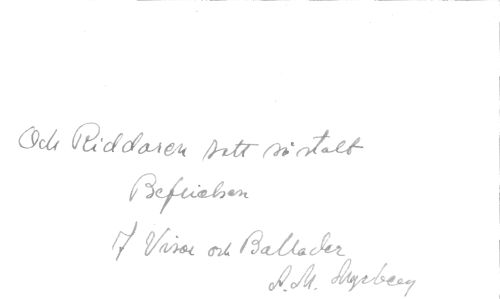 Och Riddaren satt så stolt
Befrielsen
7 Visor och Ballader
A. M. Myrberg